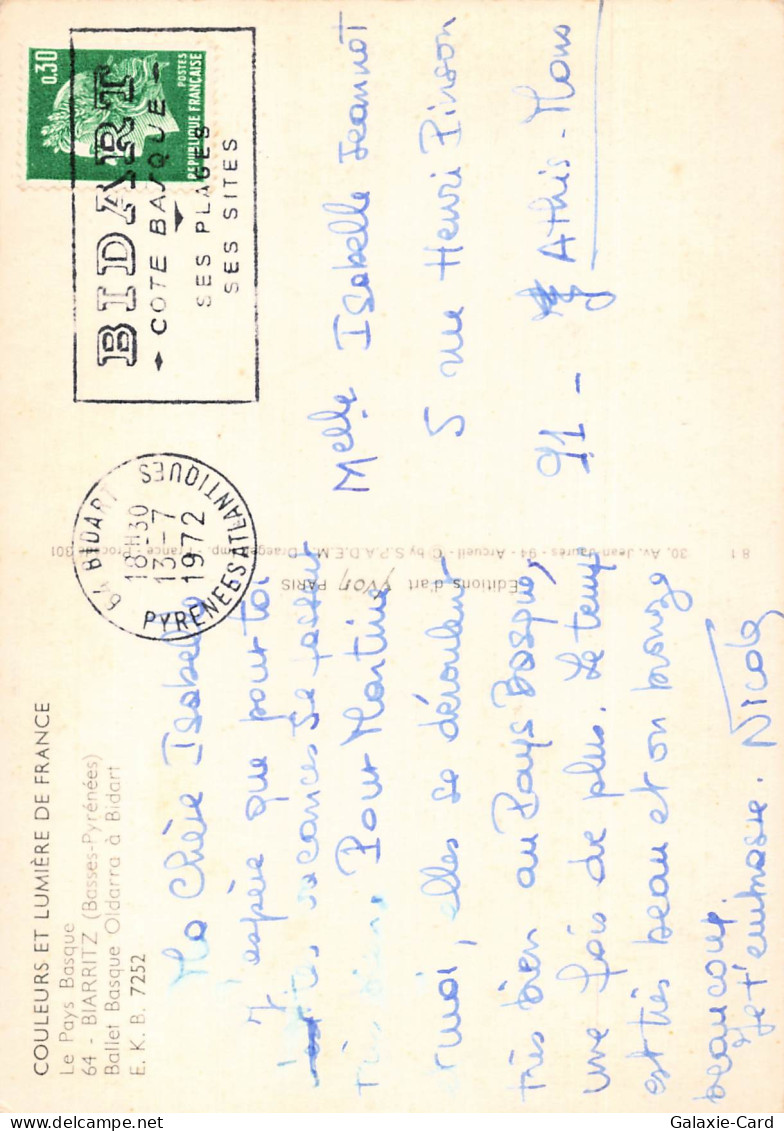 COULEURS ET LUMIÈRE DE FRANCE
Le Pays Basque
64 - BIARRITZ (Basses-Pyrénées)
Ballet Basque Oldarra à Bidart
E. K. B. 7252
Ma Chère Isabelle
J'espère que pour toi
tes vacances se passent
très bien. Pour Martine
et moi, elles se déroulent
très bien au Pays Basque,
une fois de plus. Le temps
est très beau et on bronze
beaucoup.
Je t'embrasse. Nicole
0.30
POSTES
REPUBLIQUE FRANÇAISE
BIDART
COTE BASQUE
SES PLAGES
SES SITES
64 BIDART
18H30
13-7
1972
PYRENEES ATLANTIQUES
Melle Isabelle Jeannot
5 rue Henri Pinson
91 - Athis-Mons
Éditions d'art YVON PARIS
30, Av. Jean-Jaurès - 94 - Arcueil - © by S.P.A.D.E.M. Draeger Imp. - France - Procédé 301
8 1
Galaxie-Card